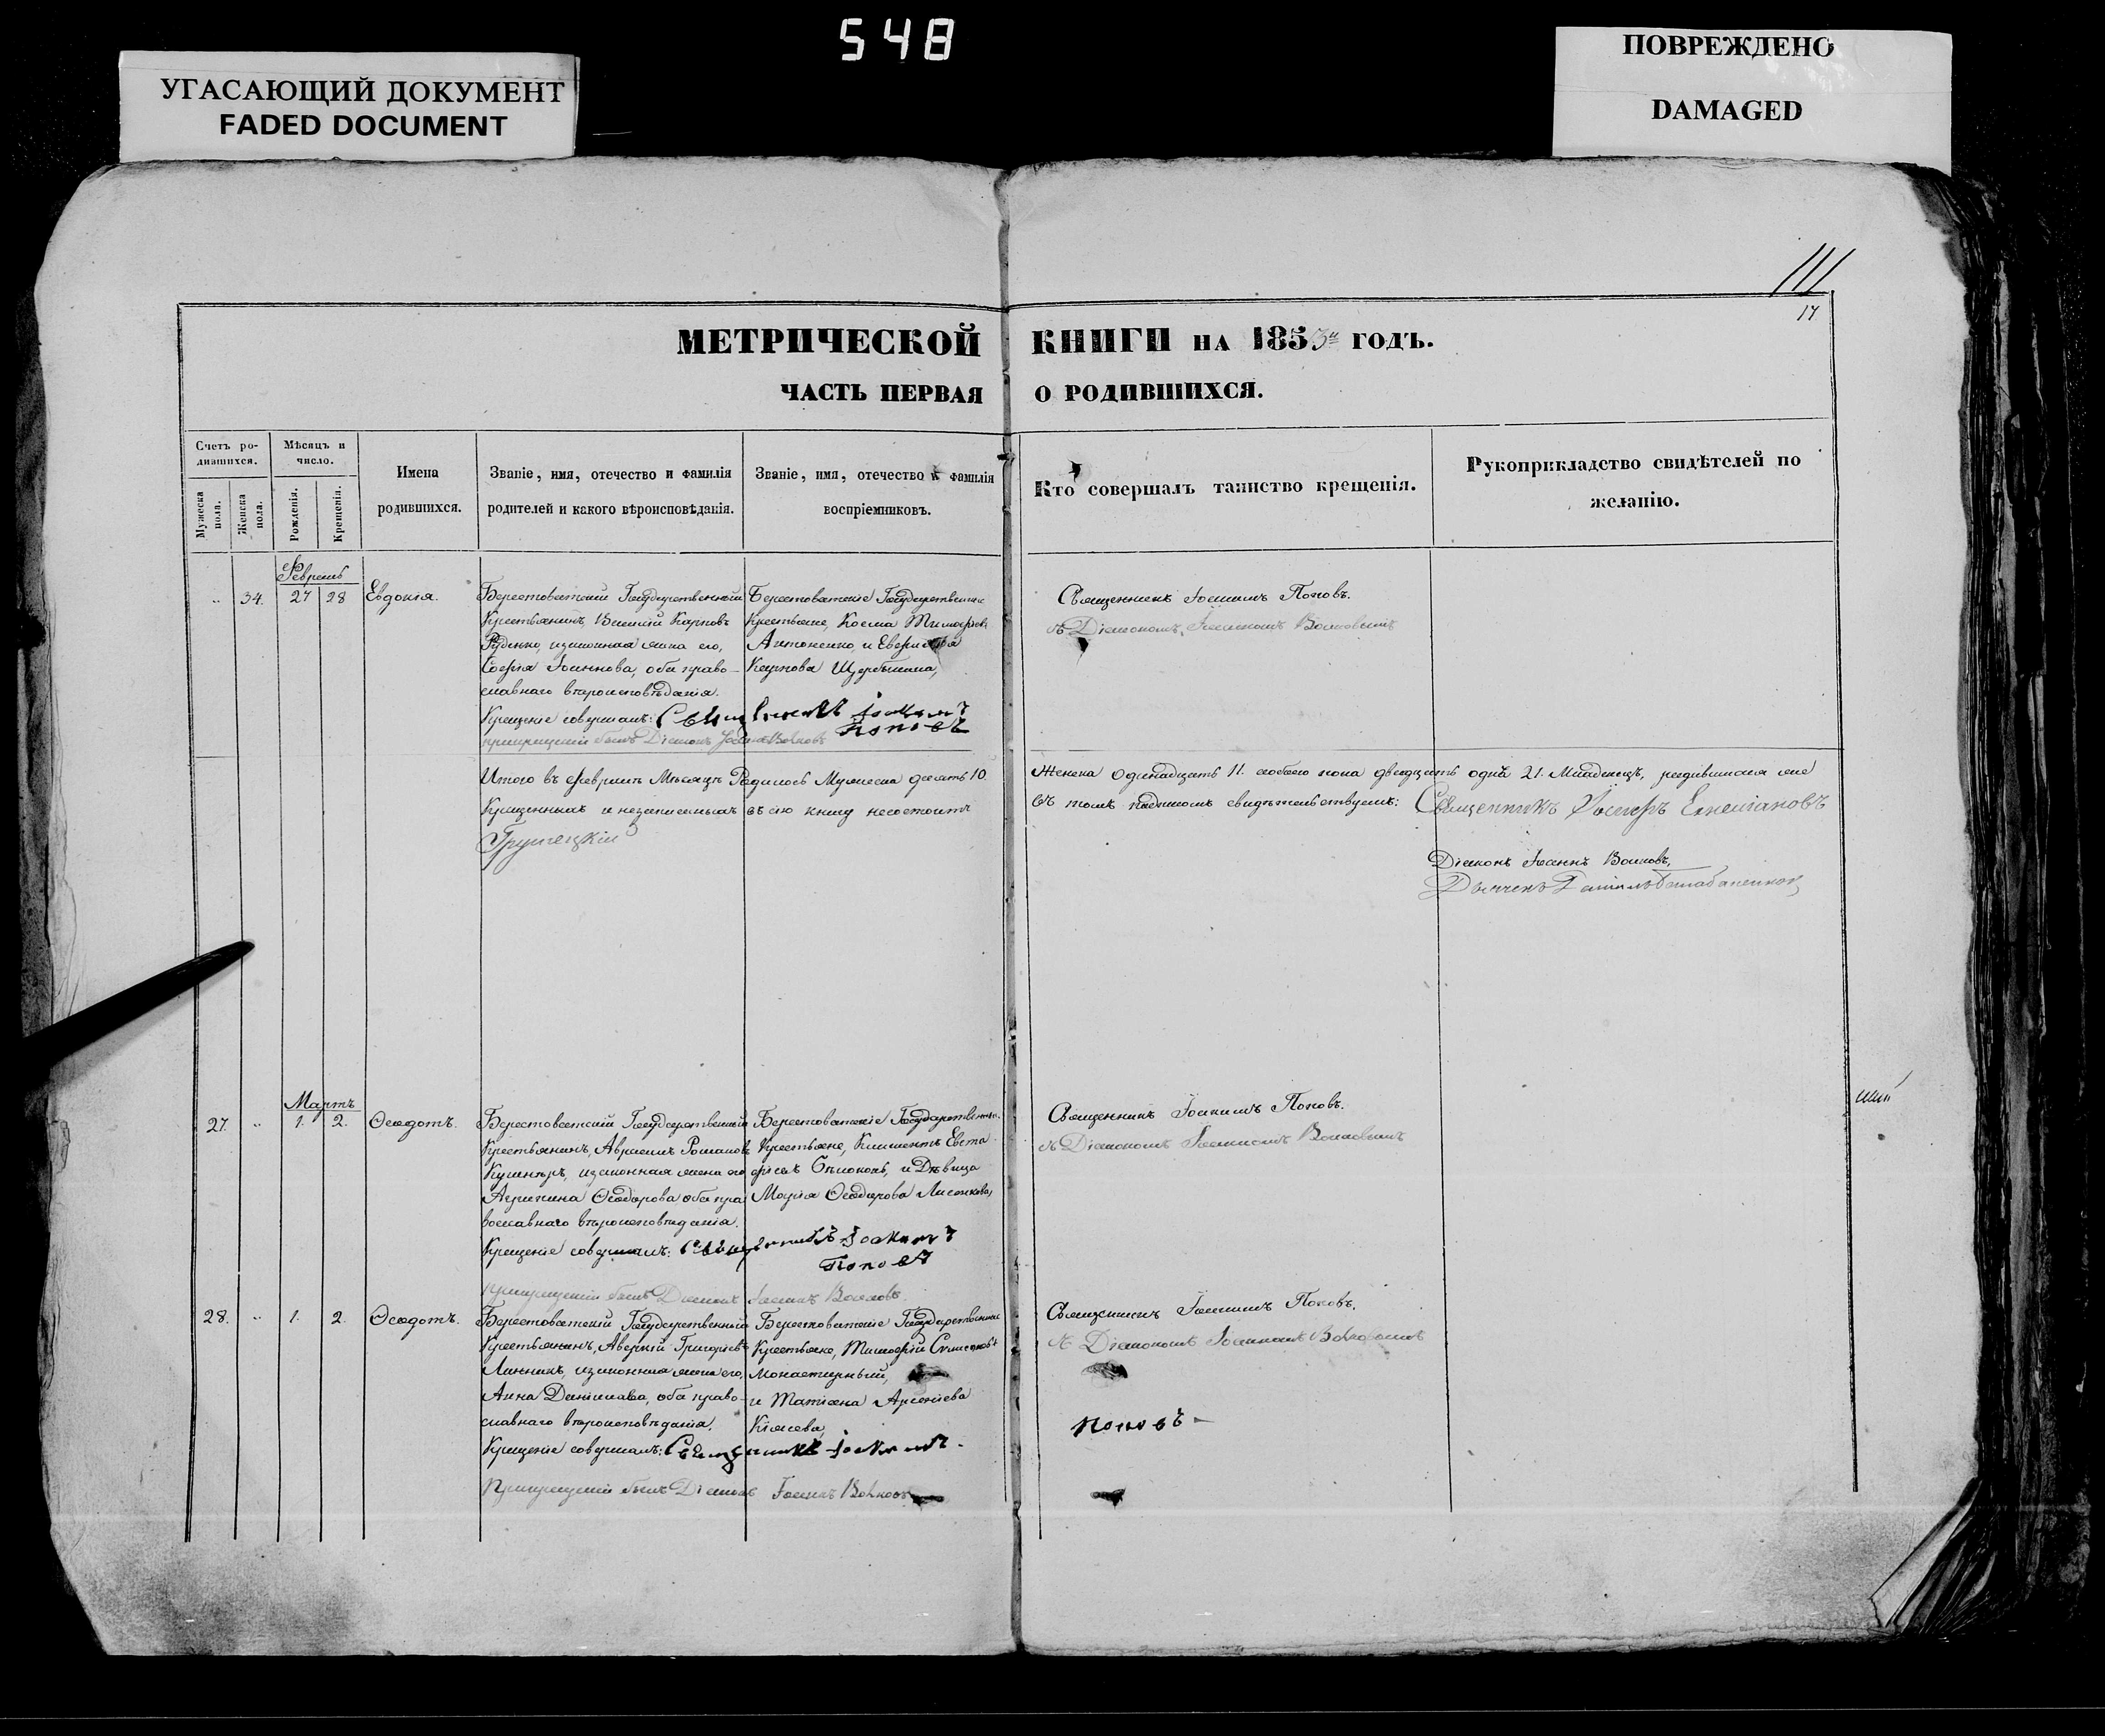 548
УГАСАЮЩИЙ ДОКУМЕНТ
FADED DOCUMENT
ПОВРЕЖДЕНО
DAMAGED
111
17
МЕТРИЧЕСКОЙ КНИГИ НА 1853й ГОДЪ.
ЧАСТЬ ПЕРВАЯ О РОДИВШИХСЯ.
Счетъ ро-
дившихся.
Мужеска пола.
Женска пола.
Мѣсяцъ и
число.
Рожденія.
Крещенія.
Имена
родившихся.
Званіе, имя, отечество и фамилія
родителей и какого вѣроисповѣданія.
Званіе, имя, отечество и фамилія
воспріемниковъ.
Кто совершалъ таинство крещенія.
Рукоприкладство свидѣтелей по
желанію.
Февраль
34. 27 28 Евдокія.
Берестоватскій Государственный
Крестьянинъ, Василій Карповъ
Руденко, изаконная жена его,
Софія Іоаннова, оба право-
славнаго вѣроисповѣданія.
Крещеніе совершалъ: Священникъ Іоакимъ
Поповъ
прикрещеніи былъ Діаконъ Іоаннъ Волковъ
Берестоватскіе Государственные
Крестьяне, Косма Тимофѣевъ
Антоненко, и
Карпова Щербинина,
Священникъ Іоакимъ Поповъ.
съ Діакономъ Іоанномъ Волковымъ
Итого въ февралѣ Мѣсяцѣ Родилось Мужеска десять 10. Женска одинадцать 11. обоего пола двадцать одинъ 21. Младенцъ, родившихся же
Крещенныхъ и незаписаныхъ въ сію книгу несостоитъ въ томъ подписомъ свидѣтельствуемъ: Священникъ
Діаконъ Іоаннъ Волковъ,
Мартъ
27. 1. 2. Ѳеодотъ.
Берестоватскій Государственный
Крестьянинъ, Авраамъ Романовъ
изаконная жена его
Агрипина Ѳеодорова оба пра
вославнаго вѣроисповѣданія.
Крещеніе совершалъ: Священникъ Іоакимъ
Поповъ
прикрещеніи былъ Діаконъ Іоаннъ Волковъ.
Берестоватскіе Государственные
Крестьяне, Климентъ Евста
фіевъ Бѣлоконь, и Дѣвица
Марія Ѳеодорова Лисенкова,
Священникъ Іоакимъ Поповъ.
съ Діакономъ Іоанномъ Волковымъ
28. 1. 2. Ѳеодотъ.
Берестоватскій Государственный
Крестьянинъ, Аверкій Григорьевъ
Линникъ, изаконная жена его,
Анна Даніилова, оба право-
славнаго вѣроисповѣданія.
Крещеніе совершалъ: Священникъ Іоакимъ
Поповъ
Прикрещеніи былъ Діаконъ Іоаннъ Волковъ
Берестоватскіе Государственные
Крестьяне, Тимофей Симеоновъ
Монастырный,
и Татіана Арсеніева
Священникъ Іоакимъ Поповъ.
съ Діакономъ Іоанномъ Волковымъ